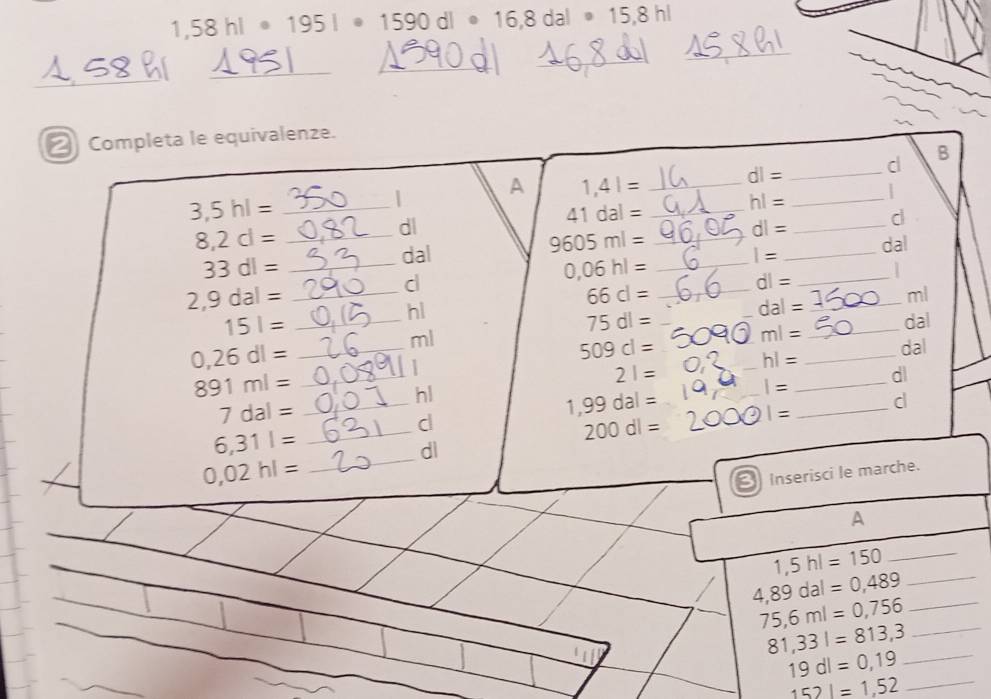 1,58 hl • 195 l • 1590 dl • 16,8 dal • 15,8 hl
1,58 hl 195 l 1590 dl 16,8 dal 15,8 hl
2 Completa le equivalenze.
A
3,5 hl = 350 l
8,2 cl = 0,82 dl
33 dl = 33 dal
2,9 dal = 290 cl
15 l = 0,15 hl
0,26 dl = 26 ml
891 ml = 0,0891 l
7 dal = 0,07 hl
6,31 l = 631 cl
0,02 hl = 20 dl
B
1,4 l = 14 dl = ______ cl
41 dal = 4,1 hl = ______ l
9605 ml = 96,05 dl = ______ cl
0,06 hl = 6 l = ______ dal
66 cl = 6,6 dl = ______ l
75 dl = ______ dal = 7500 ml
509 cl = 5090 ml = 50 dal
2 l = 0,2 hl = ______ dal
1,99 dal = 19,9 l = ______ dl
200 dl = 2000 l = ______ cl
3 Inserisci le marche.
A
1,5 hl = 150 ______
4,89 dal = 0,489 ______
75,6 ml = 0,756 ______
81,33 l = 813,3 ______
19 dl = 0,19 ______
152 l = 1,52 ______